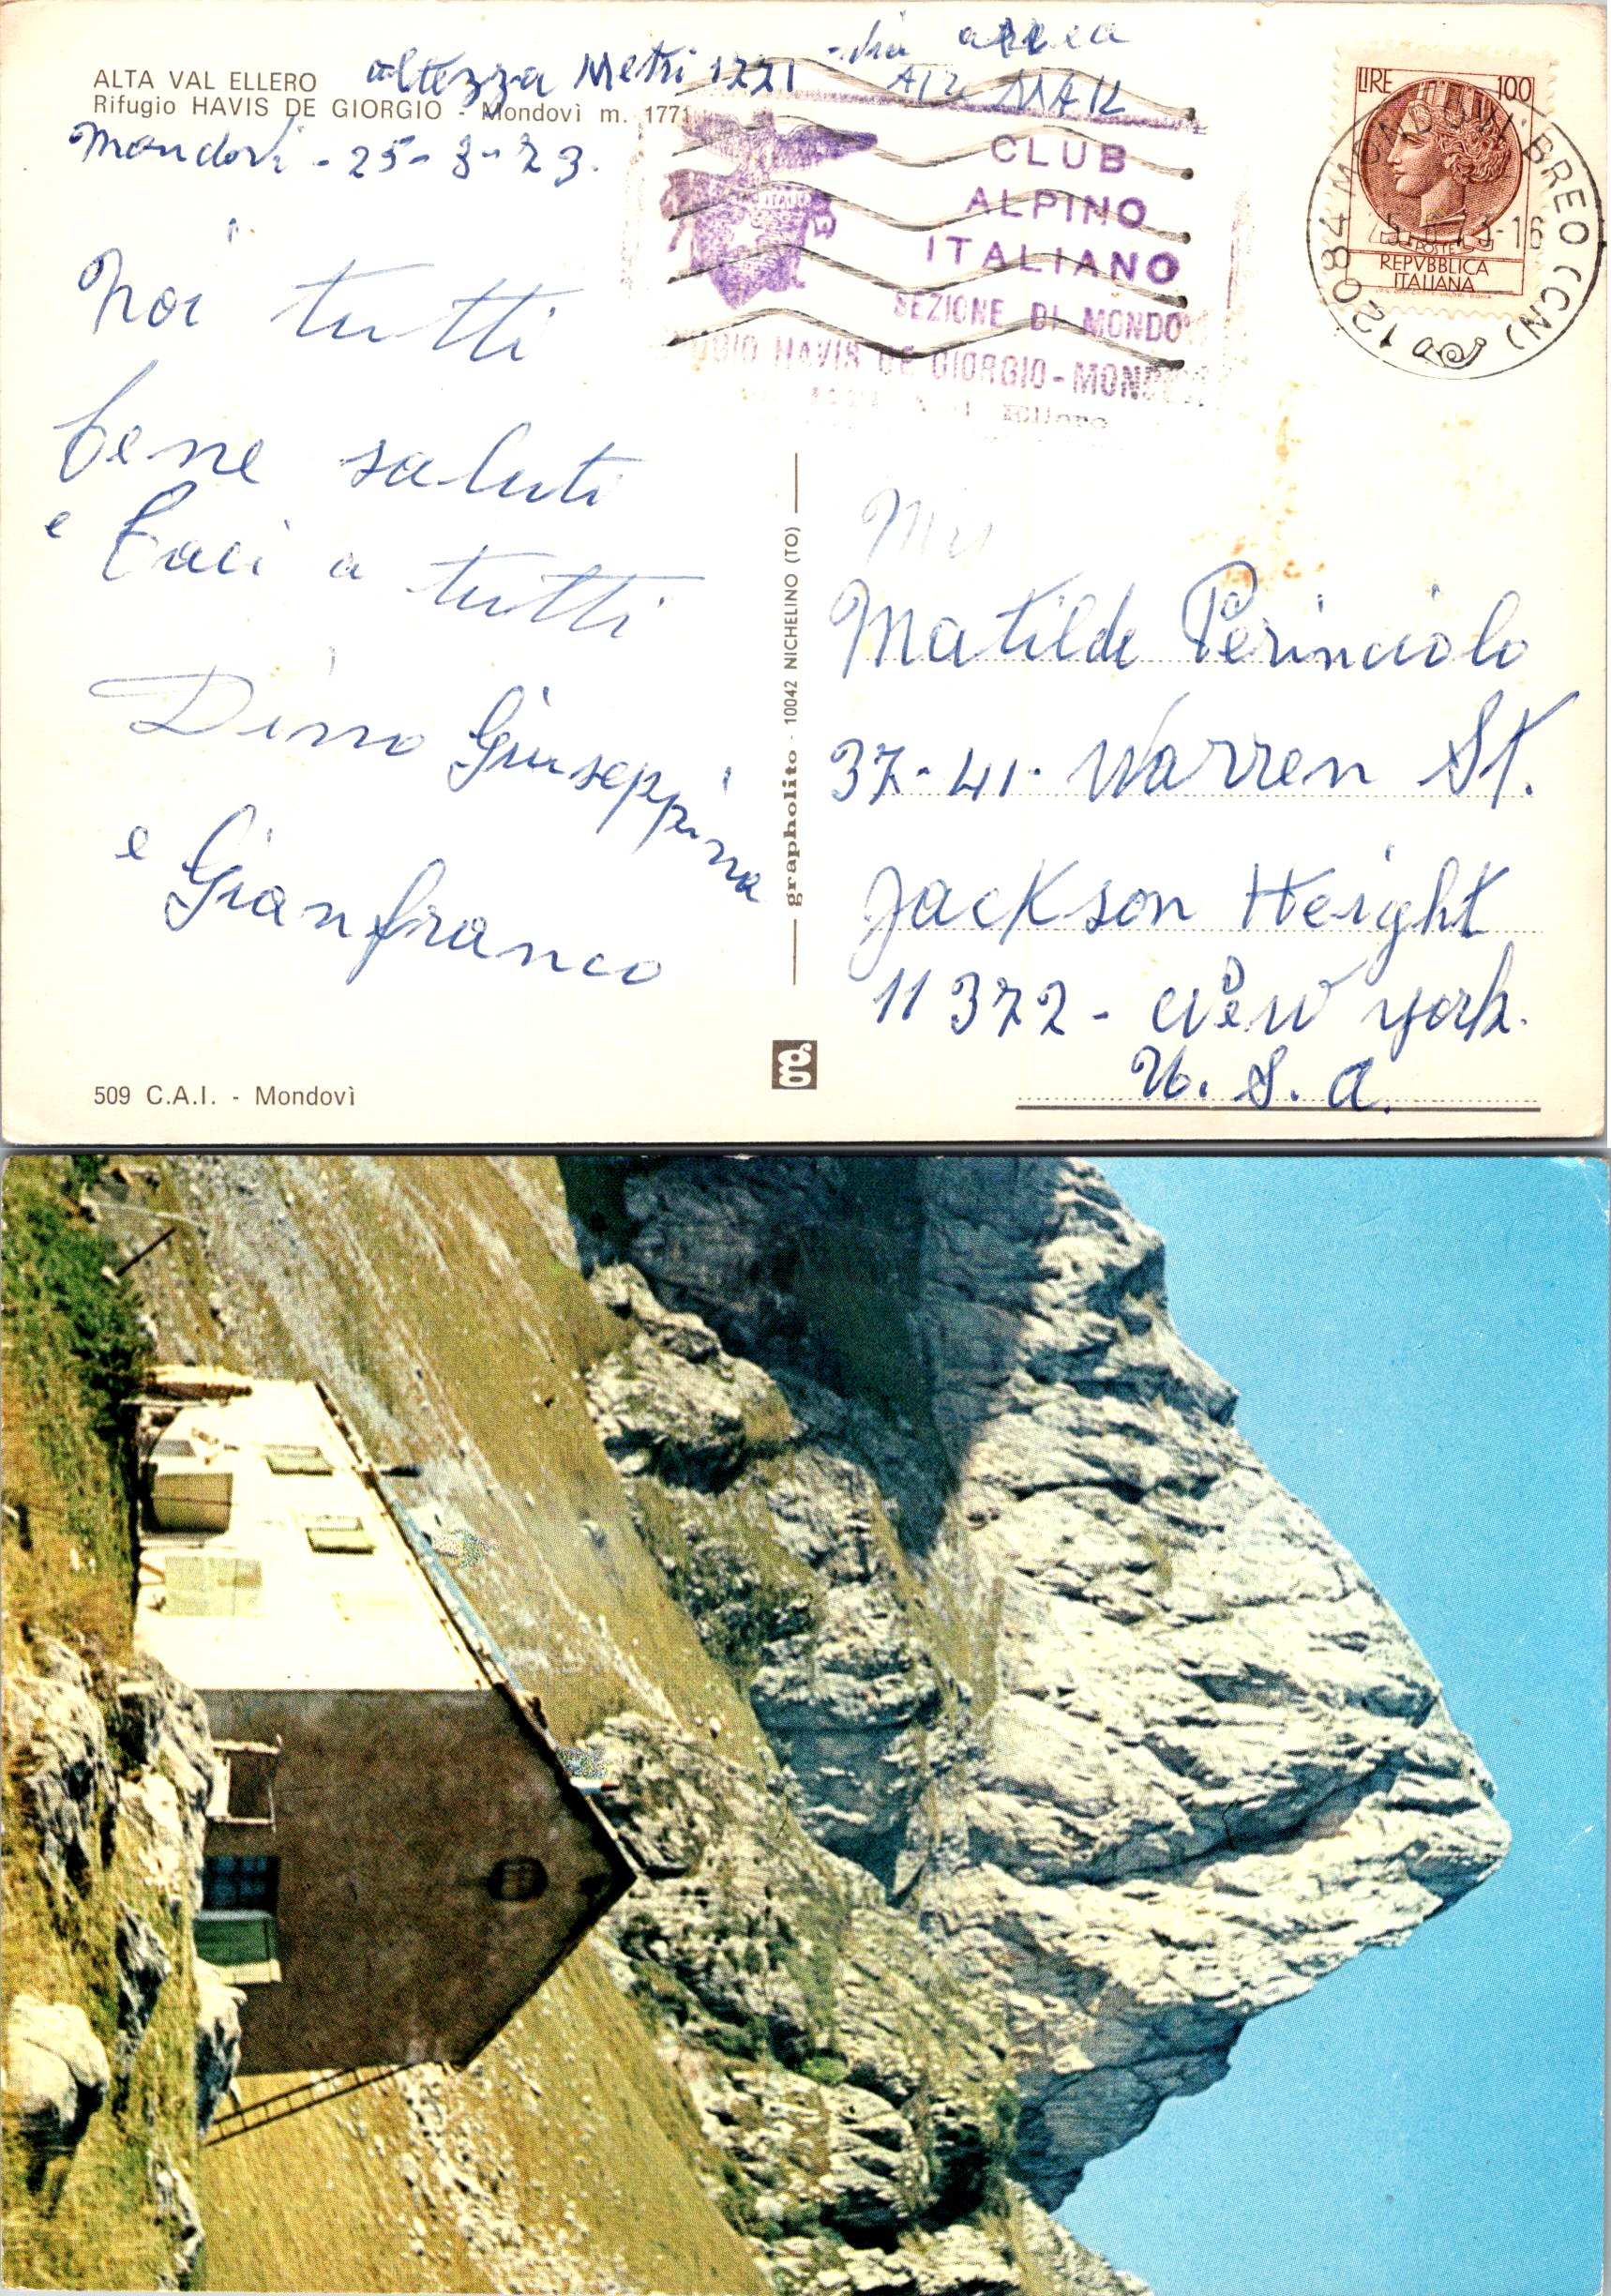 via aerea
altezza Metri 1771 AIR MAIL
ALTA VAL ELLERO
Rifugio HAVIS DE GIORGIO - Mondovì m. 1771
Mondovì - 25-8-73.
Noi tutti
bene saluti
e baci a tutti
Dino Giuseppina
e Gianfranco
509 C.A.I. - Mondovì
CLUB
ALPINO
ITALIANO
SEZIONE DI MONDO
GIO HAVIS DE GIORGIO - MONDOVI
Ellero
LIRE 100
POSTE
REPVBBLICA
ITALIANA
12084 MONDOVI BREO (CN)
73-16
grapholito - 10042 NICHELINO (TO)
g.
Matilde Perinciolo
37-41- Warren St.
Jackson Height
11372 - New York.
U. S. A.